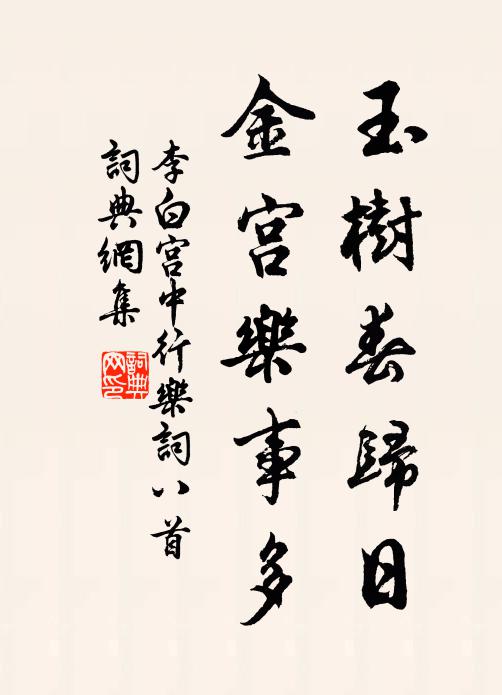 玉樹春歸日
金宮樂事多
李白宮中行樂詞八首
詞典網集
詞典網印